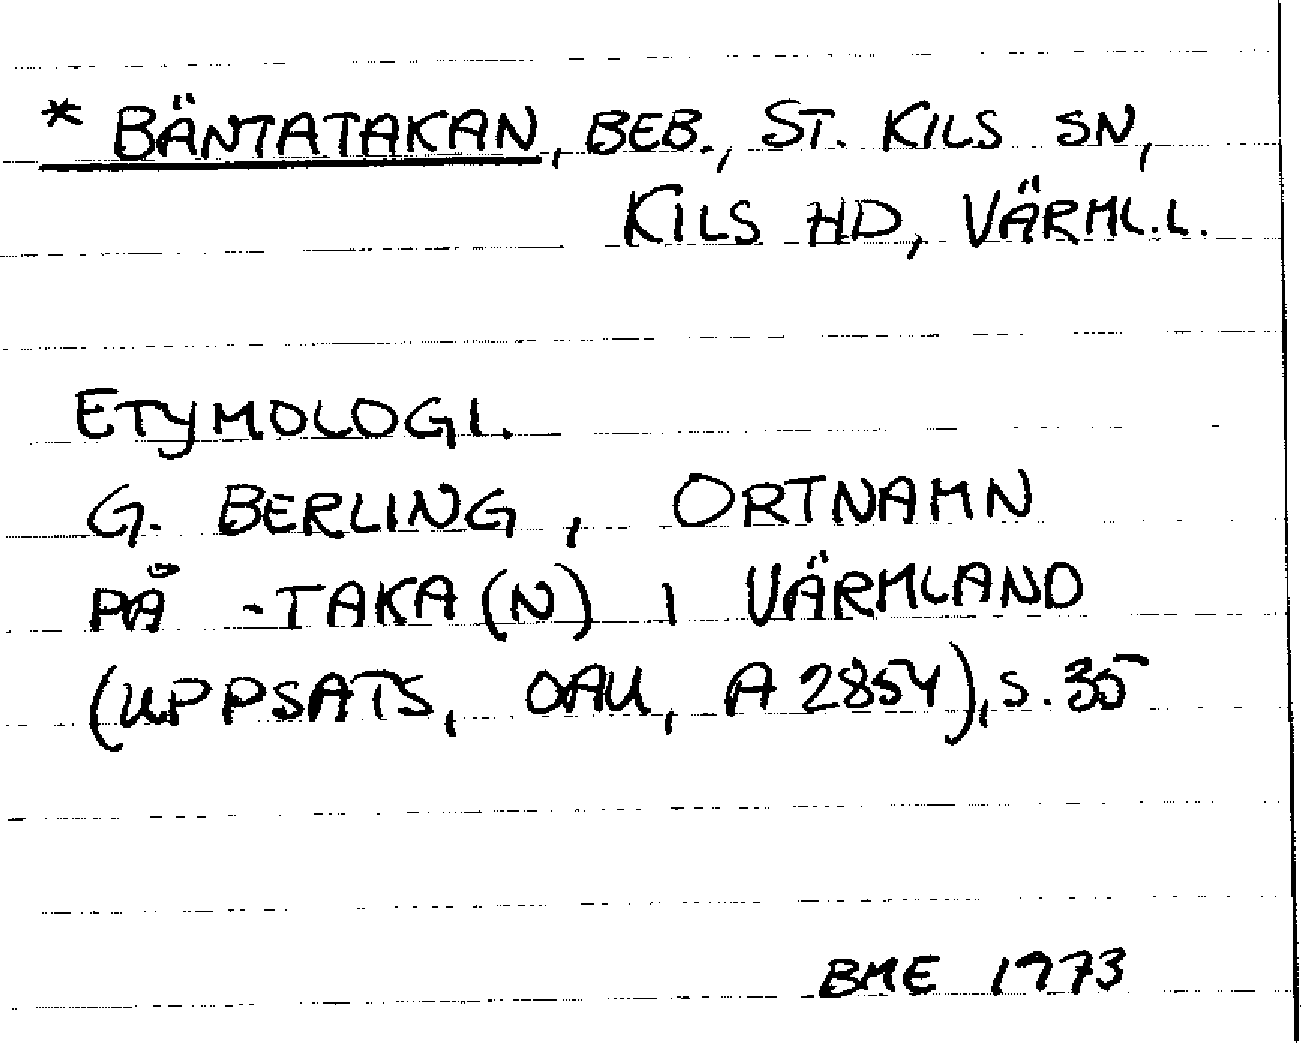 * BÄNTATAKAN, BEB., ST. KILS SN,
KILS HD, VÄRML.L.
ETYMOLOGI.
G. BERLING, ORTNAMN
PÅ -TAKA(N) I VÄRMLAND
(UPPSATS, OAU, A 2854), S. 35
BME 1973